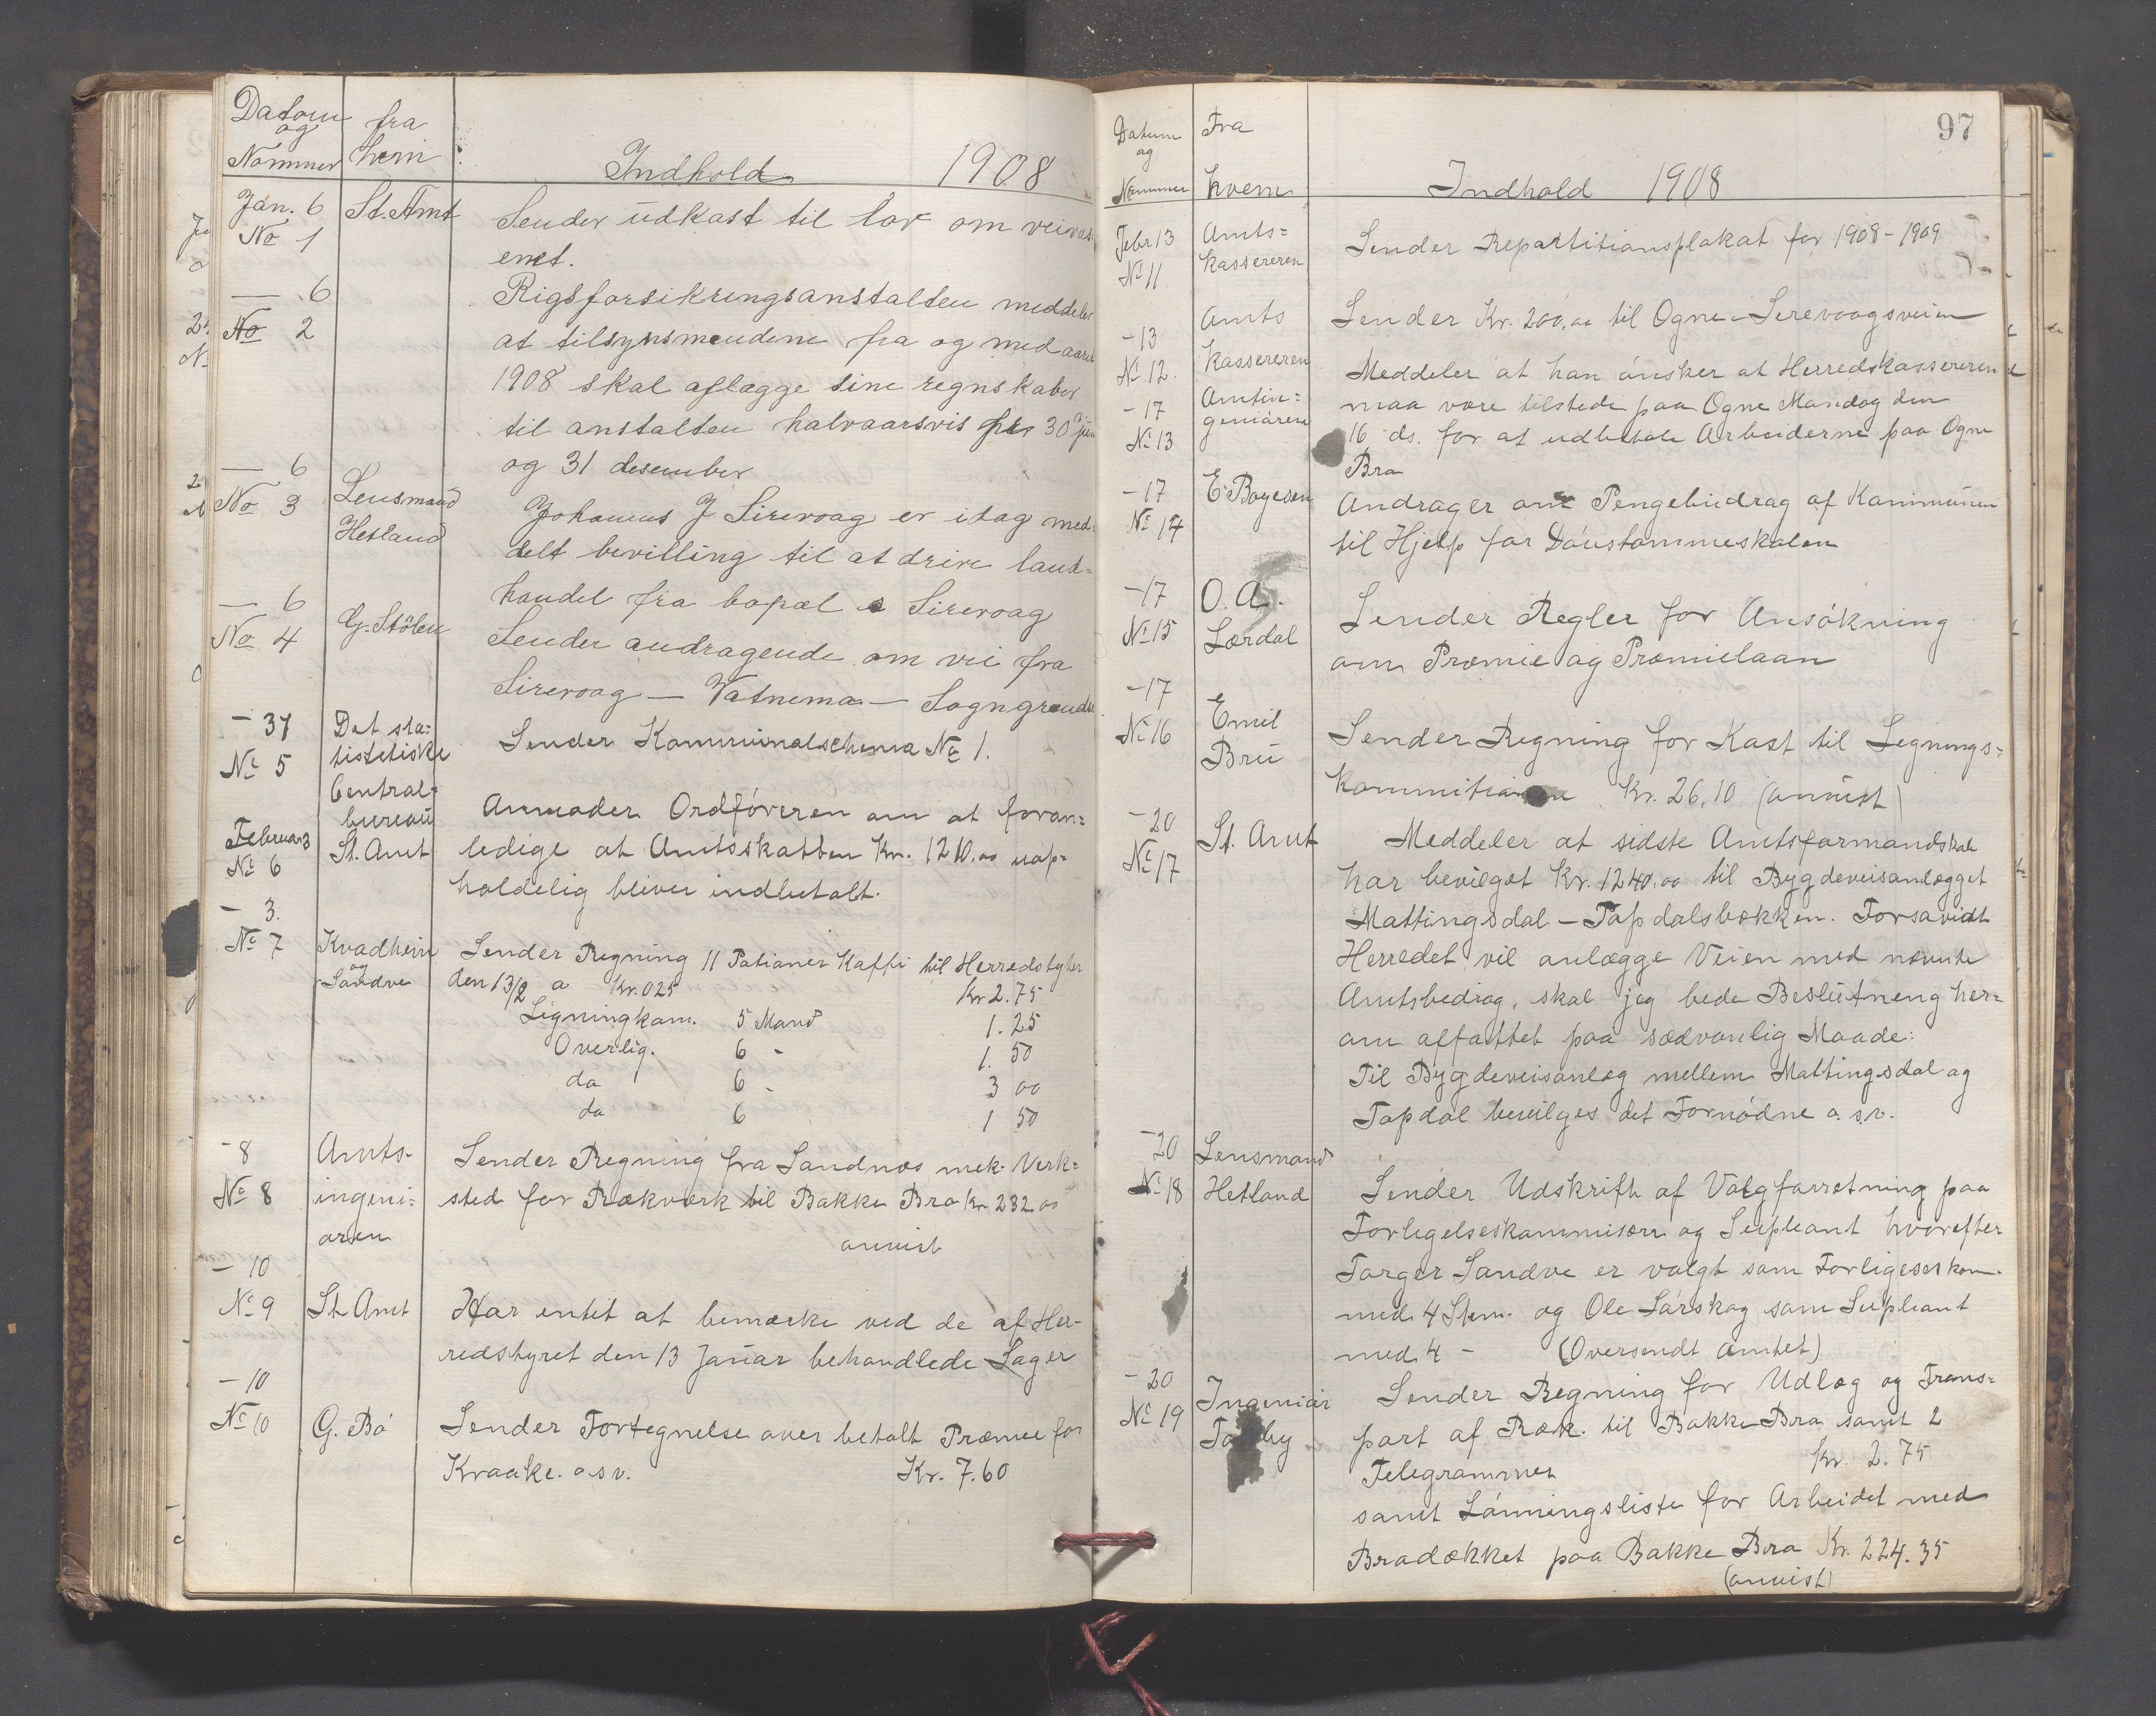 Datom og Nommer
fra hem
Indhold 1908
Jan. 6 No 1
St. Amt
Sender udkast til lov om veivæs-
enet.
— 6 No 2
Rigsforsikringsanstalten meddeler
at tilsynsmendene fra og med aaret
1908 skal aflægge sine regnskaber
til anstalten halvaarsvis pr 30 juni
og 31 desember
— 6 No 3
Lensmand Hetland
Johannes J Sirevaag er idag med=
delt bevilling til at drive land=
handel fra bopæl Sirevaag
— 6 No 4
G. Stölen
Sender andragende om vei fra
Sirevaag — Vatnemo — Sogngrændse
— 31 No 5
Det sta=
tistetiske
Central=
bureau
Sender Kommunalschema No 1.
Februar 3 No 6
St. Amt
Anmoder Ordføreren om at foran=
ledige at Amtsskatten Kr. 1210.00 uop=
holdelig bliver indbetalt.
— 3. No 7
Kvadheim og Sandve
Sender Regning 11 Potioner Kaffi til Herredstyret
den 13/2 a Kr. 025 Kr 2.75
Ligningkom. 5 Mand 1.25
Overlig. 6 - 1. 50
do 6 - 3 00
do 6 1 50
— 8 No 8
Amts-
ingeni=
øren
Sender Regning fra Sandnes mek. Verk=
sted for Rækværk til Bakke Bro Kr 232.00
anvist
— 10 No 9
St. Amt
Har intet at bemærke ved de af Her-
redstyret den 13 Januar behandlede Sager
— 10 No 10
G. Bø
Sender Fortegnelse over betalt Præmie for
Kraake. o.s.v. Kr. 7.60
97
Datum og Nummer
Fra hvem
Indhold 1908
Febr 13 No 11
Amts=
kassereren
Sender Repartitionsplakat for 1908-1909
-13 No 12.
Amts
kassereren
Sender Kr. 200.00 til Ogne-Serevaagsveien
-17 No 13
Amtin=
geniøren
Meddeler at han ønsker at Herredskassereren
maa være tilstede paa Ogne Mandag den
16 ds. for at udbetale Arbeiderne paa Ogne
Bro
-17 No 14
E Boyesen
Andrager om Pengebidrag af Kommunen
til Hjelp for Døvstommeskolen
-17 No 15
O. A.
Lærdal
Sender Regler for Ansøkning
om Præmie og Præmielaan
-17 No 16
Emil
Bru
Sender Regning for Kost til Legnings=
kommitionen Kr. 26,10 (anvist)
-20 No 17
St. Amt
Meddeler at sidste Amtsformandskab
har bevilget Kr. 1240.00 til Bygdeveisanlægget
Mattingsdal - Tapdalsbækken. Forsavidt
Herredet vil anlægge Veien med nævnte
Amtsbedrag, skal jeg bede Beslutneng her=
om affattet paa sædvanlig Maade:
Til Bygdeveisanlæg mellem Mattingsdal og
Tapdal beveilges det Fornødne o.s.v.
-20 No 18
Lensmand
Hetland
Sender Udskrift af Valgforretning paa
Forligelseskommisær og Supleant hvorefter
Torger Sandve er valgt som Forligeseskom-
med 4 Stem. og Ole Lørskog som Supleant
med 4 - (Oversendt Amtet)
-20 No 19
Ingeniør
Sender Regning for Udlæg og Trans=
port af Ræk. til Bakke Bro samt 2
Telegrammer Kr. 2.75
samt Lønningsliste for Arbeidet med
Brodækket paa Bakke Bro Kr. 224.35
(anvist)